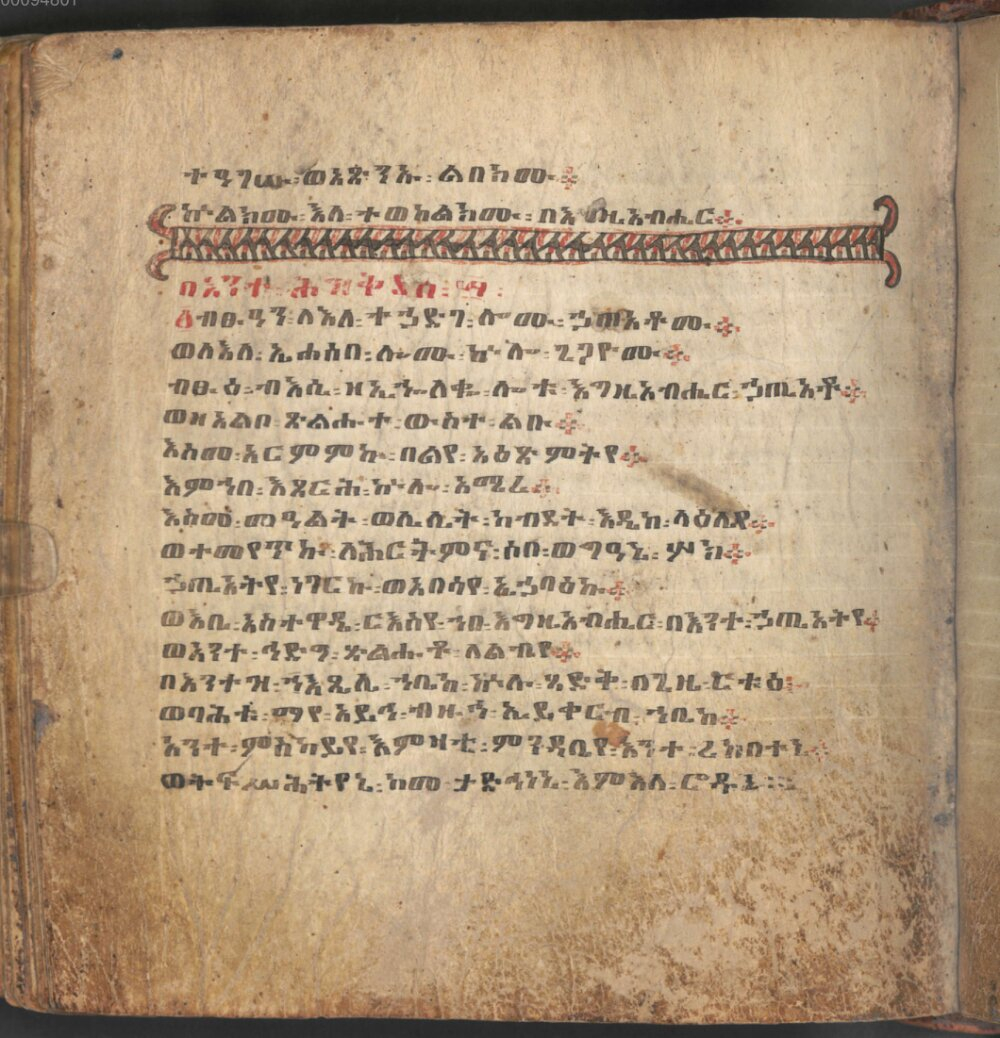 00094801
ተዓገሡ፡ወአጽንኡ፡ልበክሙ።
ኵልክሙ፡እለ፡ተወከልክሙ፡በእግዚአብሔር።
በእንተ፡ሕዝቅያስ፡
ብፁዓን፡ለእለ፡ተኃድገ፡ሎሙ፡ኃጢአቶሙ።
ወለእለ፡ኢሐሰበ፡ሎሙ፡ኵሎ፡ጌጋዮሙ።
ብፁዕ፡ብእሲ፡ዘኢኈለቈ፡ሎቱ፡እግዚአብሔር፡ኃጢአቶ።
ወዘአልቦ፡ጽልሑተ፡ውስተ፡ልቡ።
እስመ፡አርመምኩ፡በልየ፡አዕጽምትየ።
እምኀበ፡እጸርሕ፡ኵሎ፡አሚረ።
እስመ፡መዓልት፡ወሌሊት፡ከብደት፡እዴከ፡ላዕሌየ።
ወተመየጥኩ፡ለሕርትምና፡ሶበ፡ወግዓኒ፡ሦክ።
ኃጢአትየ፡ነገርኩ፡ወአበሳየ፡ኢኃባዕኩ።
ወእቤ፡አስተዋዲ፡ርእስየ፡ኀበ፡እግዚአብሔር፡በእንተ፡ኃጢአትየ።
ወአንተ፡ኅድግ፡ጽልሑቶ፡ለልብየ።
በእንተዝ፡ይጼሊ፡ኀቤከ፡ኵሉ፡ጻድቅ፡በጊዜ፡ርቱዕ።
ወባሕቱ፡ማየ፡አይኅ፡ብዙኅ፡ኢይቀርብ፡ኀቤከ።
አንተ፡ምስካይየ፡እምዛቲ፡ምንዳቤየ፡እንተ፡ረከበተኒ።
ወትፍሥሕትየኒ፡ከመ፡ታድኅነኒ፡እምእለ፡ሮዱኒ።